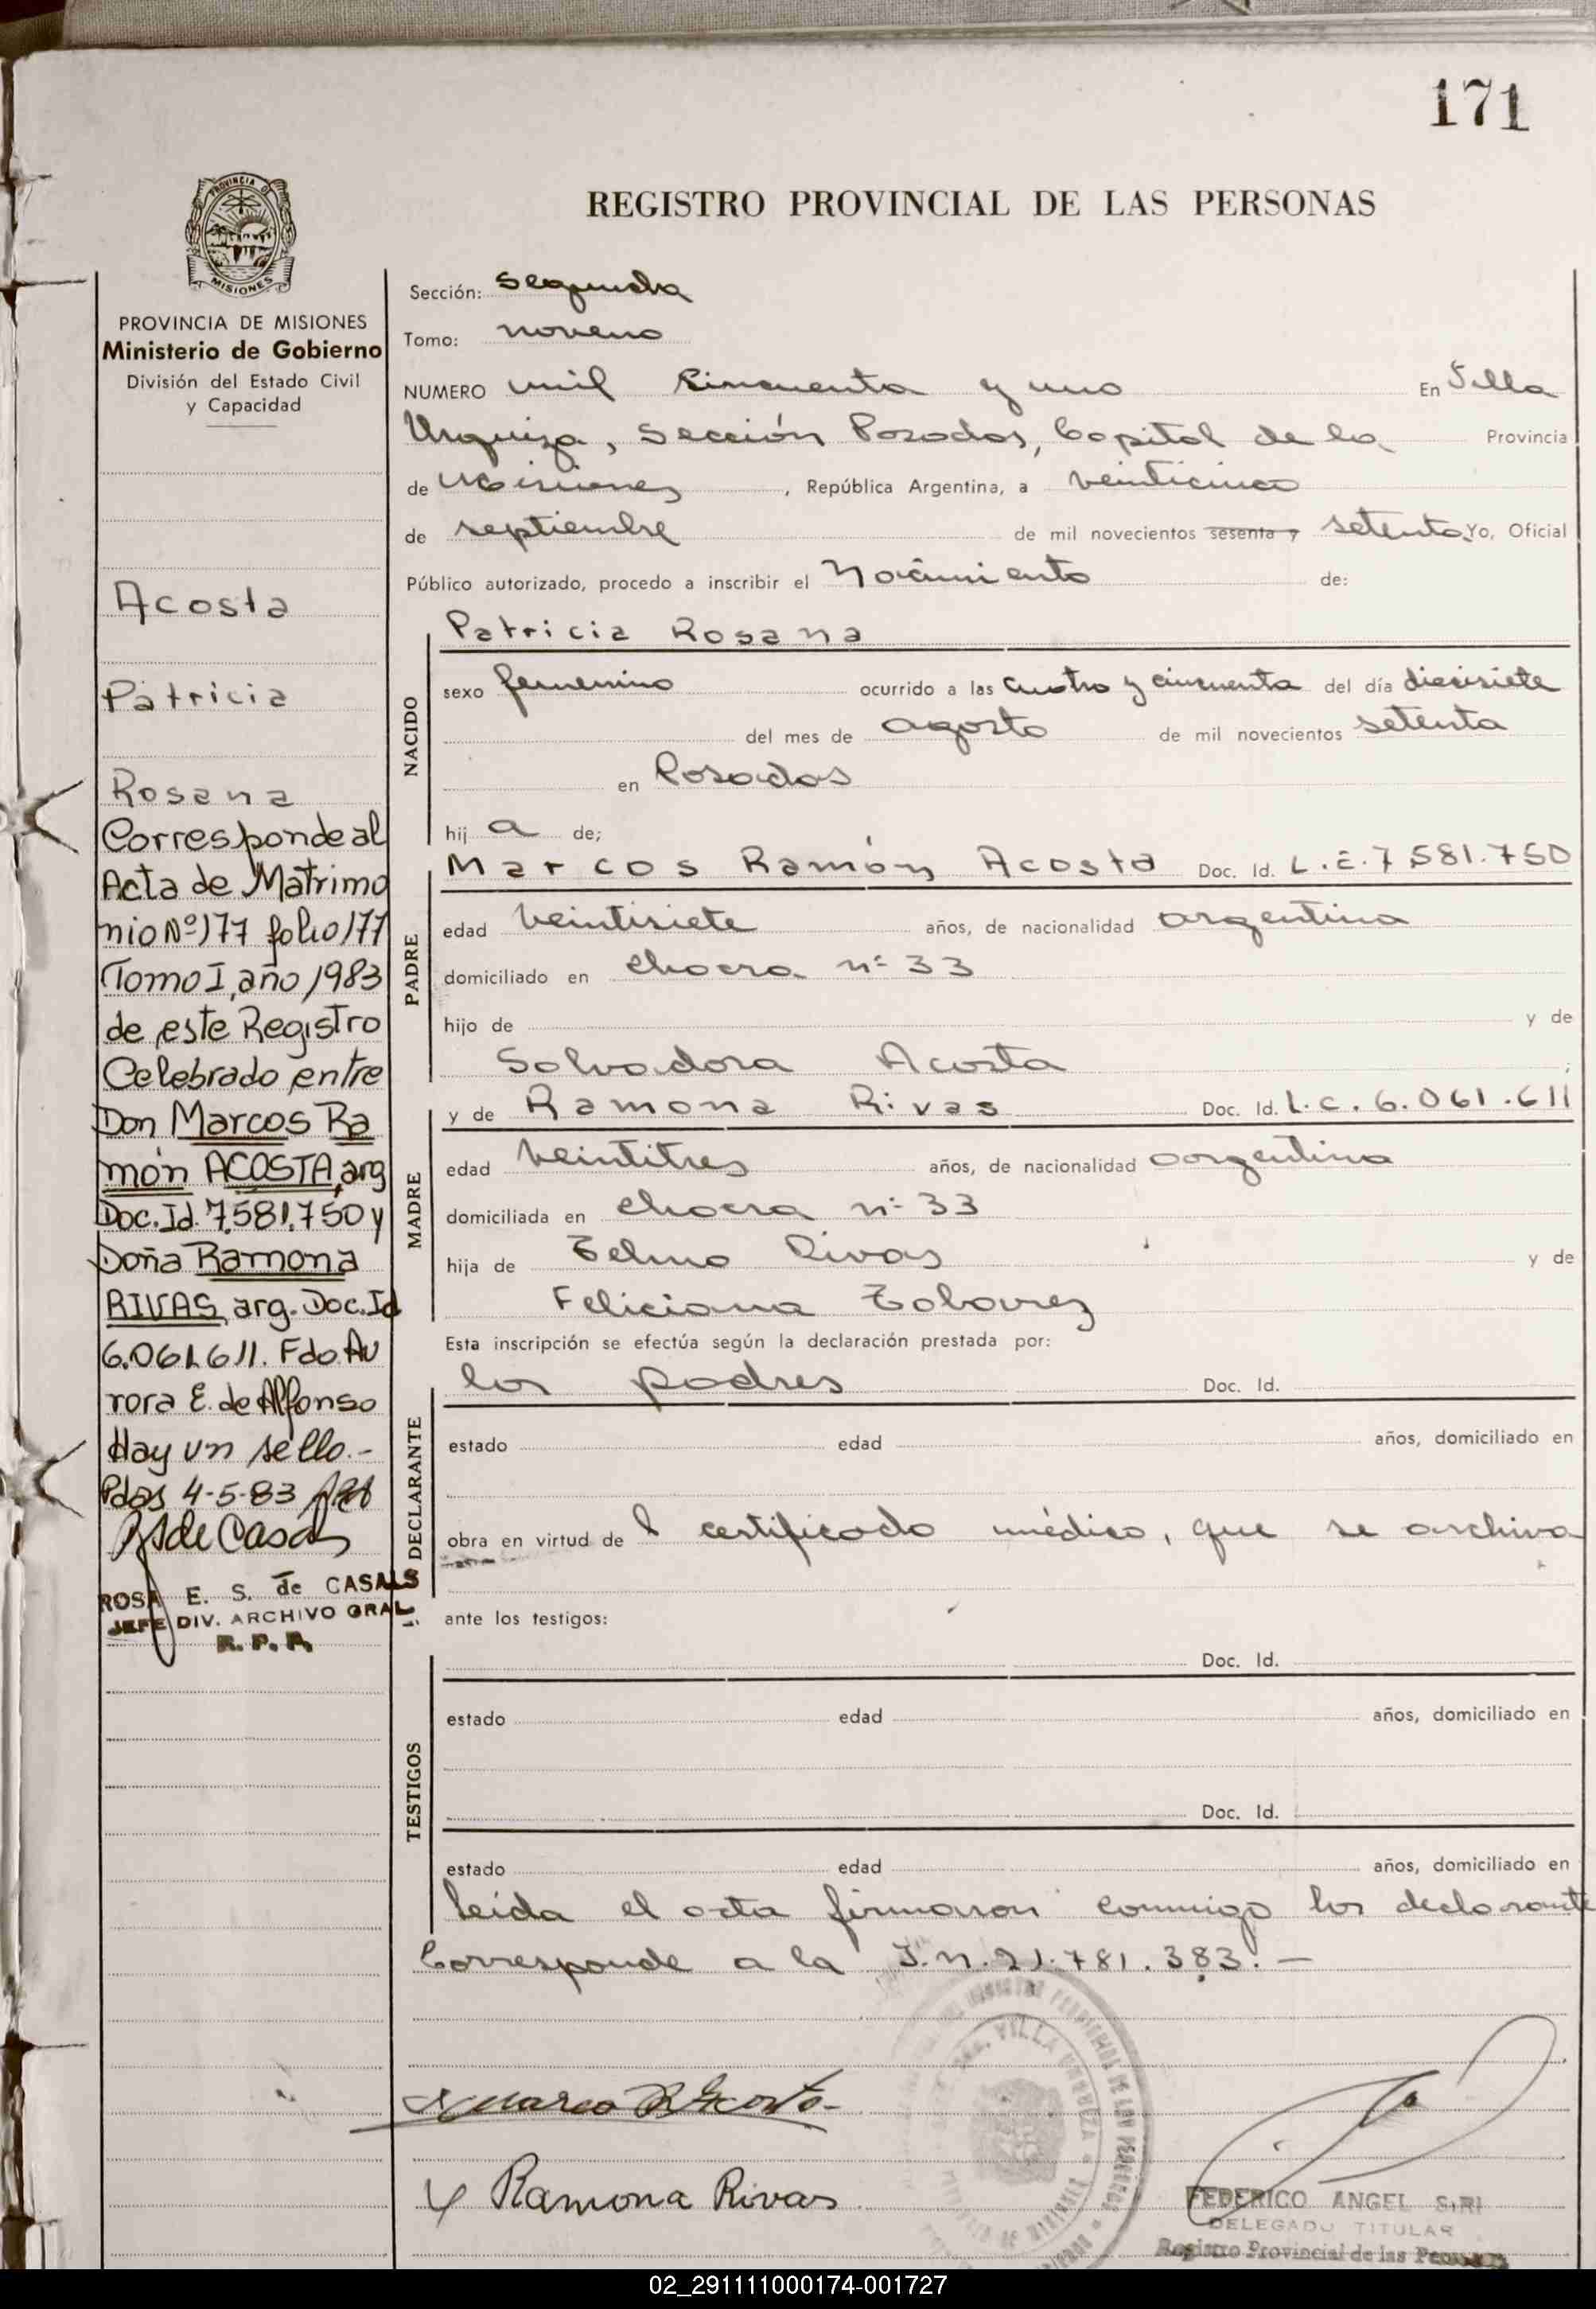 171
REGISTRO PROVINCIAL DE LAS PERSONAS
PROVINCIA DE
MISIONES
PROVINCIA DE MISIONES
Ministerio de Gobierno
División del Estado Civil
y Capacidad
Acosta
Patricia
Rosana
Corresponde al
Acta de Matrimo
nio Nº 177 folio 177
Tomo I, año 1983
de este Registro
Celebrado entre
Don Marcos Ra
món ACOSTA, arg
Doc. Id. 7.581.750 y
Doña Ramona
RIVAS, arg. Doc. Id
6.061.611. Fdo. Au
rora E. de Alfonso
Hay un sello.-
Pdas 4-5-83
RS de Casals
ROSA E. S. de CASALS
JEFE DIV. ARCHIVO GRAL.
R. P. P.
Sección: Segunda
Tomo: noveno
NUMERO mil cincuenta y uno En Villa
Urquiza, Sección Posadas, Capital de la Provincia
de Misiones, República Argentina, a veinticinco
de septiembre de mil novecientos sesenta y setenta Yo, Oficial
Público autorizado, procedo a inscribir el Nacimiento de:
NACIDO
Patricia Rosana
sexo femenino ocurrido a las cuatro y cincuenta del día diecisiete
del mes de agosto de mil novecientos setenta
en Posadas
hij a de;
PADRE
Marcos Ramón Acosta Doc. Id. L.E. 7.581.750
edad veintisiete años, de nacionalidad argentina
domiciliado en chacra nº 33
hijo de y de
Salvadora Acosta ;
MADRE
y de Ramona Rivas Doc. Id. L.C. 6.061.611
edad veintitres años, de nacionalidad argentina
domiciliada en chacra nº 33
hija de Telmo Rivas y de
Feliciana Tabarez
Esta inscripción se efectúa según la declaración prestada por:
DECLARANTE
los padres Doc. Id.
estado edad años, domiciliado en
obra en virtud de l certificado médico, que se archiva
ante los testigos:
TESTIGOS
Doc. Id.
estado edad años, domiciliado en
Doc. Id.
estado edad años, domiciliado en
Leída el acta firmaron conmigo los declarante
Corresponde a la I.N. 21.781.383.-
Marco R Acosta-
Ramona Rivas
VILLA URQUIZA
FEDERICO ANGEL SIRI
DELEGADO TITULAR
Registro Provincial de las Personas
02_291111000174-001727